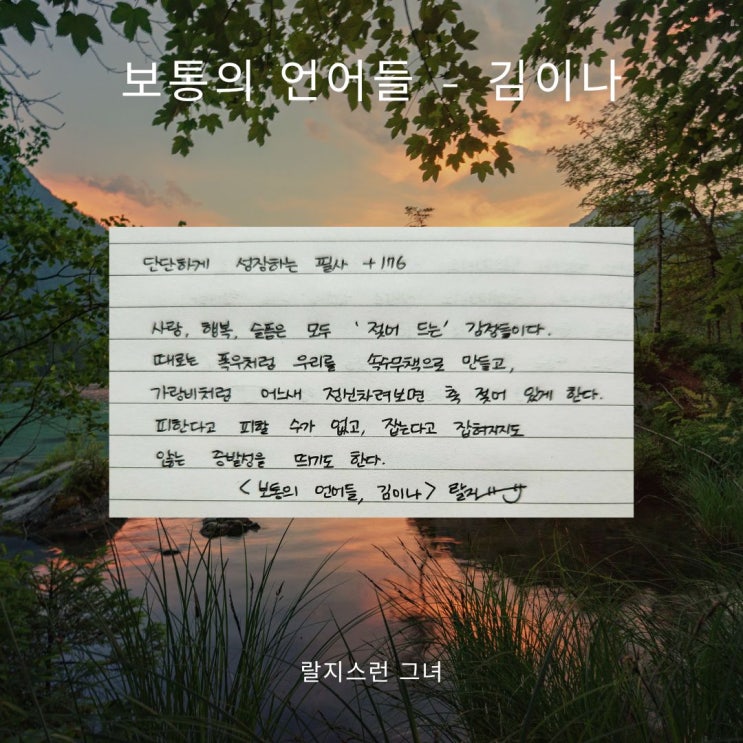 보통의 언어들 - 김이나
단단하게 성장하는 필사 +176
사랑, 행복, 슬픔은 모두 '젖어 드는' 감정들이다.
때로는 폭우처럼 우리를 속수무책으로 만들고,
가랑비처럼 어느새 정신차려보면 축 젖어 있게 한다.
피한다고 피할 수가 없고, 잡는다고 잡혀지지도
않는 증발성을 띄기도 한다.
<보통의 언어들, 김이나> 랄지
랄지스런 그녀